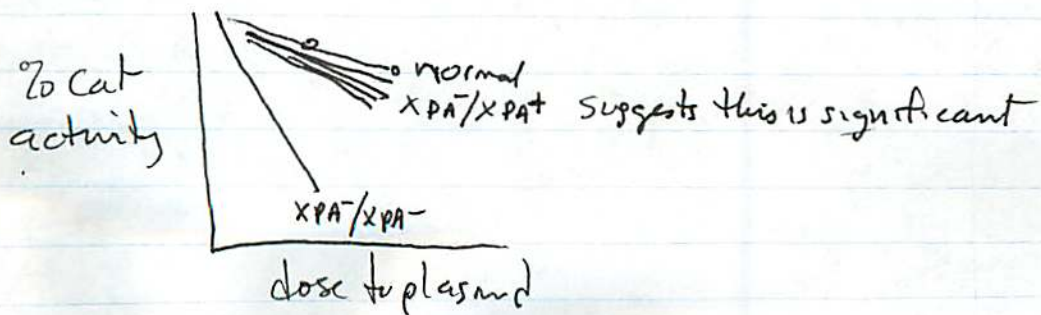 % Cat
activity
normal
XPA⁻/XPA⁺ suggests this is significant
XPA⁻/XPA⁻
dose to plasmid